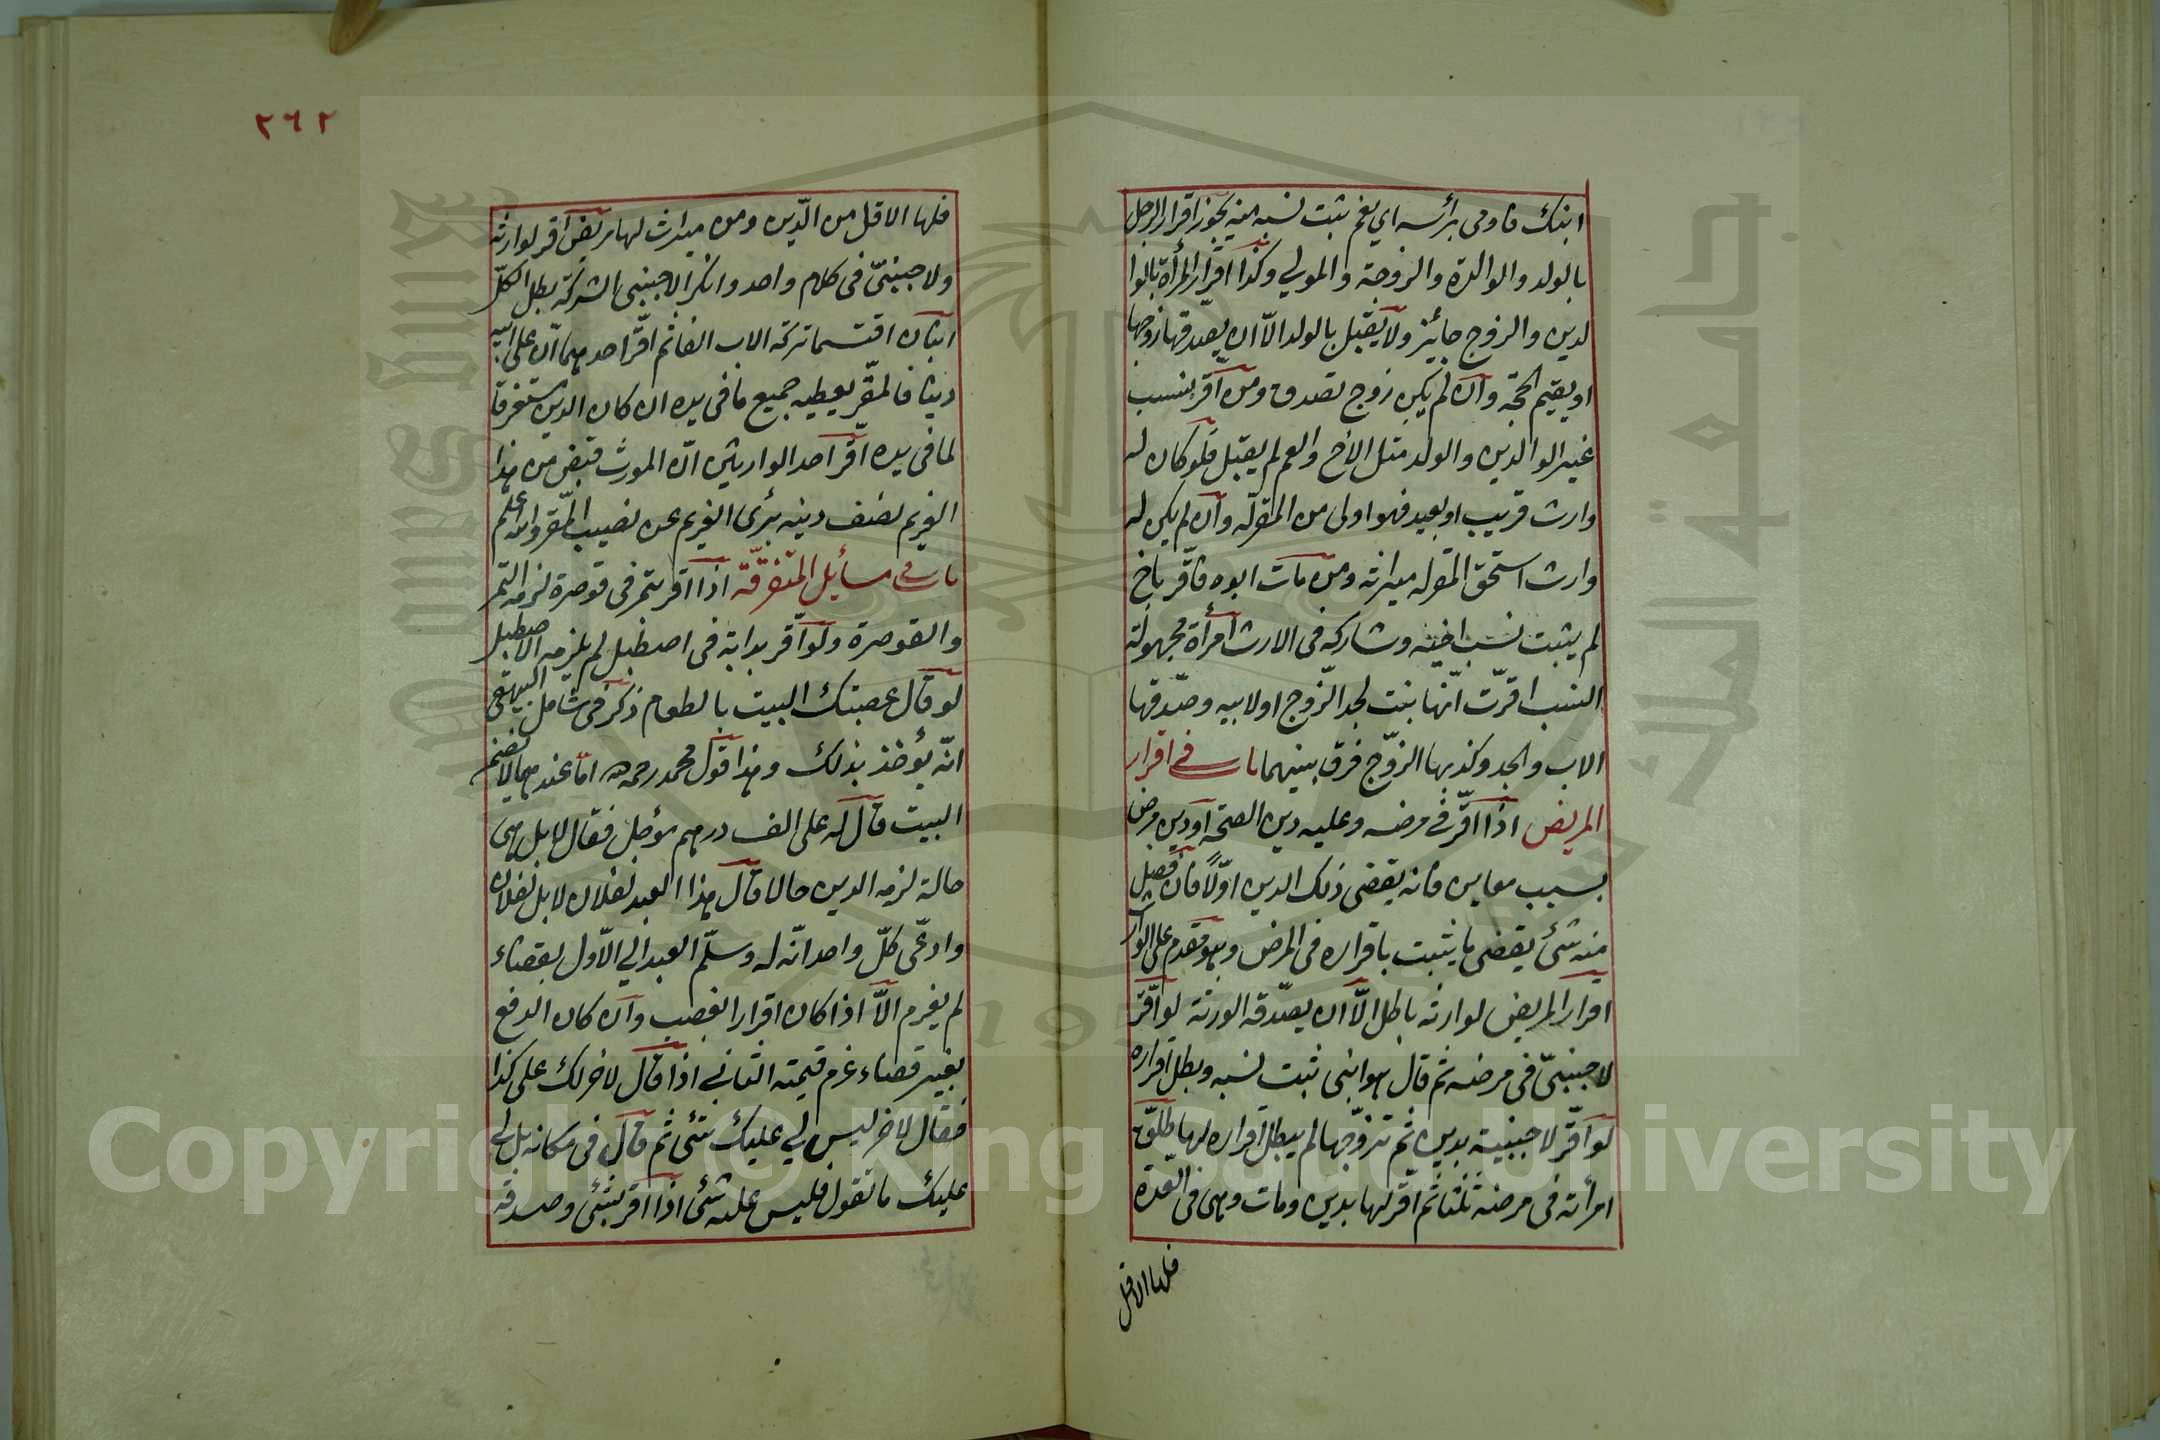 ابنك فاومى برأسه اي نعم يثبت نسبه منه يجوز اقرار الرجل
بالولد والوالدة والزوجة والمولي وكذا اقرار المرأة بالوا
لدين والزوج جائز ولا يقبل بالولد الّا ان يصدقها زوجها
او يقيم الحجّة وان لم يكن زوج تصدق ومن اقر بنسب
غير الوالدين والولد مثل الأخ والعم لم يقبل فلو كان له
وارث قريب او بعيد فهو اولى من المقرله وان لم يكن له
وارث استحق المقرله ميراثه ومن مات ابوه فاقّر باخ
لم يثبت نسب اخيه وشاركه في الارث امرأة مجهولة
النسب اقرّت انّها بنت لجد الزّوج او لابيه وصدّقها
الاب والجد وكذبها الزوّج فرق بينهما باب في اقرار
المريض اذا اقرّ في مرضه وعليه دين الصحّة او دين مرض
بسبب معاين فانه يقضي ذلك الدين اوّلاً فان فضل
منه شئ يقضى ما يثبت باقراره في المرض وهو مقدم على الوارث
اقرار المريض لوارثه باطل الّا ان يصدّقه الورثة لو اقّر
لاجنبىّ في مرضه ثم قال هو ابنى ثبت نسبه وبطل اقراره
لو اقّر لاجنبية بدين ثم تزوّجها لم يبطل اقراره لها طلّق
امرأته في مرضه ثلثا ثم اقّر لها بدين ومات وهى في العدة
فلها الاقل
٢٦٢
فلها الاقل من الدّين ومن ميراث لها مريض اقر لوارثه
ولاجنبىّ في كلام واحد وانكر الاجنبي الشركة بطل الكلّ
ابنان اقتسما تركة الاب الفا ثم اقّر احدهما انّ على ابيه
دينا فالمقّر يعطيه جميع ما في يده ان كان الدين مستغرقا
لما في يده اقّر احد الوارثين انّ المورث قبض من هذا
الغريم نصف دينه برئ الغريم عن نصيب المقّر والله اعلم
باب في مسائل المتفرقّة اذا اقر بتمر في قوصرة لزمه التمر
والقوصرة ولو اقّر بدابة في اصطبل لم يلزمه الاصطبل
لو قال غصبتك البيت بالطعام ذكر في شامل البيهقي
انّه يؤخذ بذلك وهذا قول محمد رحمه امّا عندهما لا يضمن
البيت قال له على الف درهم مؤجل فقال لا بل هي
حالة لزمه الدين حالا قال هذا العبد لفلان لا بل لفلان
وادّعى كلّ واحد انّه له وسلّم العبد الي الاّول بقضاء
لم يغرم الاّ اذا كان اقرار الغصب وان كان الدفع
بغير قضاء غرم قيمته الثاني اذا قال لاخر لك على كذا
فقال لاخر ليس لي عليك شئ ثم قال في مكانه بل لي
عليك ما تقول فليس عليه شئ اذا اقر بشئ وصدقه
Copyright © King Saud University
جامعة الملك سعود
King Saud University
1957